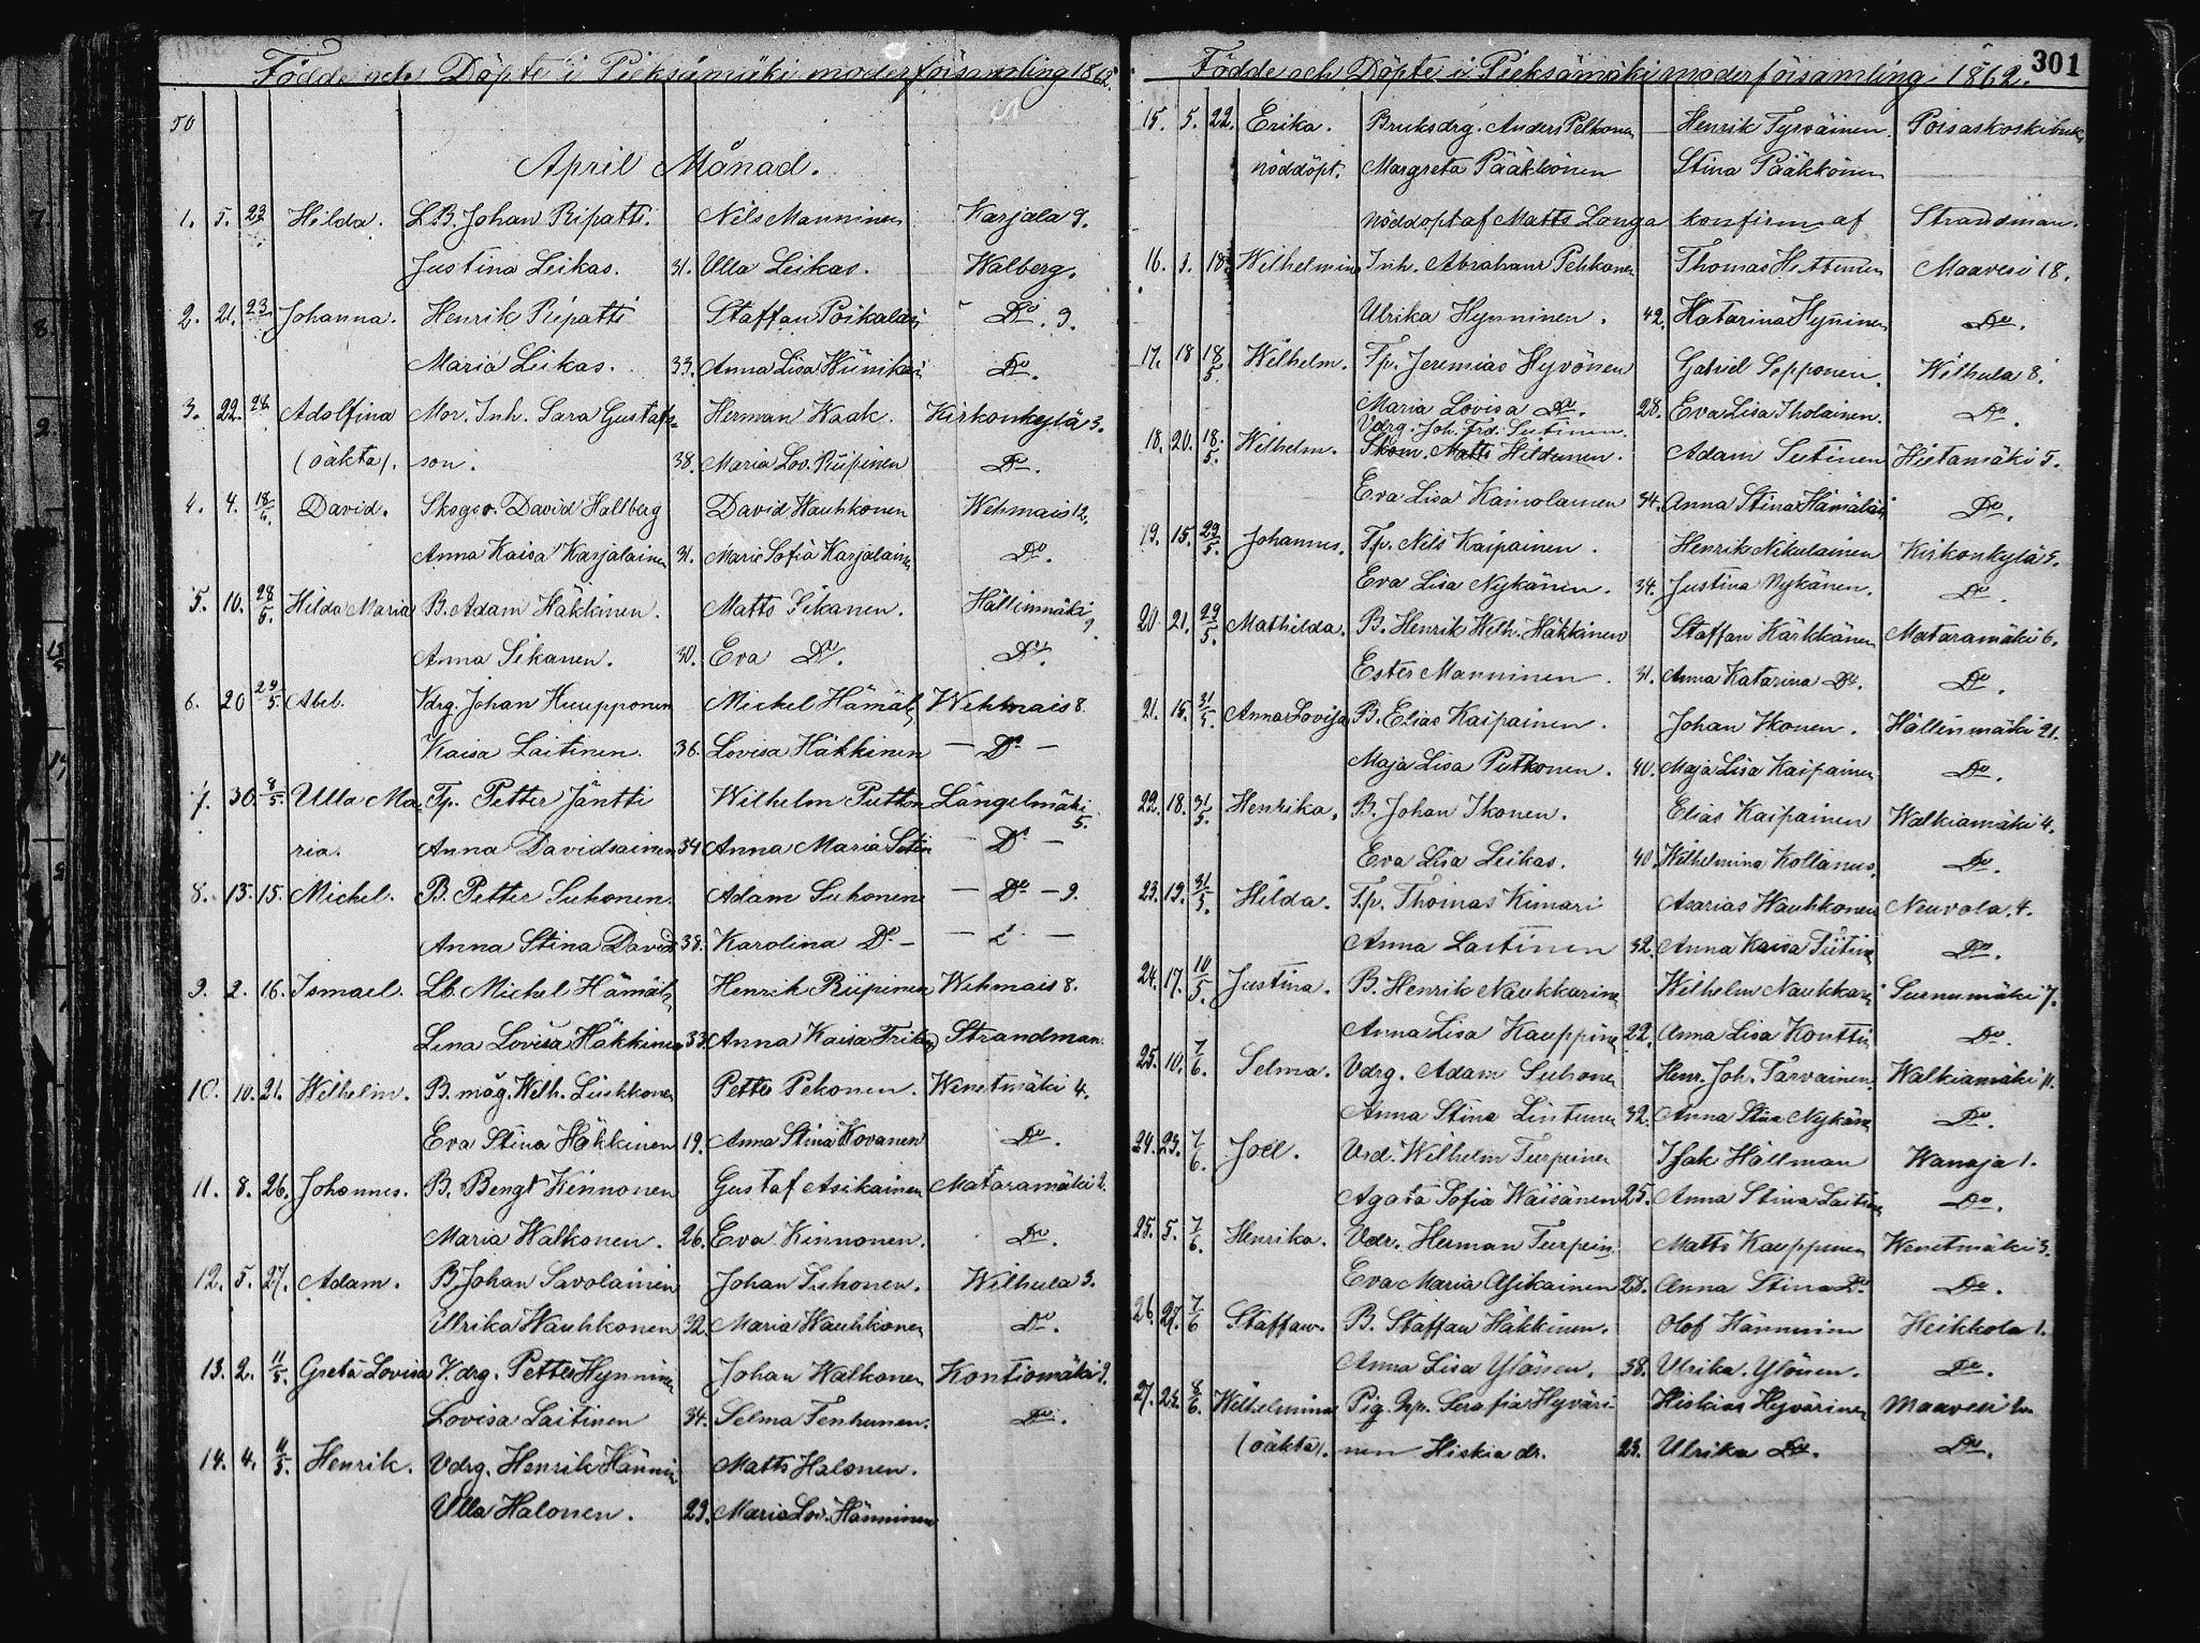 Födde och Döpte i Pieksämäki moderförsamling 1862.
50
April Månad.
1. 5. 22 Hilda. L.B. Johan Ripatti. Nils Manninen Karjala 9.
Justina Leikas. 31. Ulla Leikas. Walberg.
2. 21. 23 Johanna. Henrik Ripatti Staffan Poikalai Do. 9.
Maria Leikas. 33. Anna Lisa Do.
3. 22. 28 Adolfina Mor. Inh. Sara Gustafs- Herman Kaak. Kirkonkylä 3.
(oäkta). son. 38. Maria Lov. Riipinen Do.
4. 4. David. Skogsv. David Hallberg David Hauhkonen Wehmais 12.
Anna Kaisa Karjalainen 31. Maria Sofia Karjalain Do.
5. 10. 28/5. Hilda Maria B. Adam Häkkinen. Matts Sikanen. Hällinmäki 9.
Anna Sikanen. 30. Eva Do. Do.
6. 20 29/5. Abel. Vdrg. Johan Kuupponen Michel Hämäl. Wehmais 8.
Kaisa Laitinen. 36. Lovisa Häkkinen — Do —
7. 30. 8/5. Ulla Ma- Tp. Petter Jäntti Wilhelm Putkon Längelmäki 5.
ria. Anna Davidsainen 34 Anna Maria — Do —
8. 13. 15. Michel. B. Petter Suhonen. Adam Suhonen — Do — 9.
Anna Stina David 38. Karolina Do — —
9. 2. 16. Ismael. Lb. Michel Hämäl. Henrik Riipinen Wehmais 8.
Lena Lovisa Häkkinen 33. Anna Kaisa Strandman.
10. 10. 21. Wilhelm. B. måg. Welh. Liukkonen Petter Pekonen. Wenetmäki 4.
Eva Stina Häkkinen 19. Anna Stina Hovanen Do.
11. 8. 26. Johannes. B. Bengt Kinnonen Gustaf Asikainen Mataramäki 2.
Maria Walkonen. 26. Eva Kinnonen. Do.
12. 5. 27. Adam. B. Johan Savolainen Johan Suhonen. Wilhula 3.
Ulrika Hauhkonen 32. Maria Hauhkonen Do.
13. 2. 11/5. Greta Lovisa Vdrg. Petter Hynninen Johan Walkonen Kontiomäki 2.
Lovisa Laitinen 34. Selma Tenhunen. Do.
14. 4. 11/5. Henrik. Vdrg. Henrik Hännin Matts Halonen.
Ulla Halonen. 29. Maria Lov. Hänninen
301
Födde och Döpte i Pieksämäki moderförsamling 1862.
15. 5. 22. Erika. Bruksdrg. Anders Pelkonen Henrik Tyrväinen. Porsaskoskibruk
nöddöpt. Margreta Pääkkönen Stina Pääkkönen
nöddöpt af Matts Longa konfirm. af Strandman.
16. 3. 18. Wilhelmina Inh. Abraham Pekkonen Thomas Maavesi 18.
Ulrika Hynninen. 42. Katarina Hyninen Do.
17. 18 18/5 Wilhelm. Tp. Jeremias Hyvönen Gabriel Sopponen. Wilhula 8.
Maria Lovisa Do. 28. Eva Lisa Iholainen. Do.
Vdrg. Joh. Frd. Sutinen.
18. 20. 18/5. Wilhelm. Skom. Matts Hildunen. Adam Sutinen Hietamäki 5.
Eva Lisa Kainolainen 34. Anna Stina Hämäläi Do.
19. 15. 29/5. Johannes. Tp. Nils Kaipainen. Henrik Nikulainen Kirkonkylä 5.
Eva Lisa Nykänen. 34. Justina Nykänen. Do.
20. 21. 29/5. Mathilda. B. Henrik Welh. Häkkinen Staffan Kärkkänen Mataramäki 6.
Ester Manninen. 31. Anna Katarina Do. Do.
21. 15. 31/5. Anna Lovisa B. Elias Kaipainen. Johan Ikonen. Hällinmäki 21.
Maja Lisa Putkonen. 40. Maja Lisa Kaipainen Do.
22. 18. 31/5. Henrika. B. Johan Ikonen. Elias Kaipainen Walkiamäki 4.
Eva Lisa Leikas. 40. Wilhelmina Kollanus. Do.
23. 19. 31/5. Hilda. Tp. Thomas Kimari Asarias Hauhkonen Neuvola. 4.
Anna Laitinen 32. Anna Kaisa Do.
24. 17. 10/5. Justina. B. Henrik Naukkarinen Wilhelm Naukkari Surnumäki 7.
Anna Lisa Kauppinen 22. Anna Lisa Konttin Do.
25. 10. 7/6. Selma. Vdrg. Adam Suhonen Henr. Joh. Tarvainen. Walkiamäki 11.
Anna Stina Lintunen 32. Anna Stina Nykän Do.
24. 23. 7/6. Joel. Vrd. Wilhelm Turpeinen Isak Hällman Wanaja 1.
Agata Sofia Wäisänen 25. Anna Stina Laitinen Do.
25. 5. 7/6. Henrika. Vdr. Herman Turpein. Matts Kauppinen Wenetmäki 3.
Eva Maria Asikainen 28. Anna Stina Do. Do.
26. 27. 7/6 Staffan. B. Staffan Häkkinen. Olof Hänninen Heikkola 1.
Anna Lisa Ylönen. 38. Ulrika Ylönen. Do.
27. 23. 8/6. Wilhelmina Pig. Serafia Hyväri- Hiskias Hyvärinen Maavesi
(oäkta). nen Hiskia dr. 23. Ulrika Do. Do.